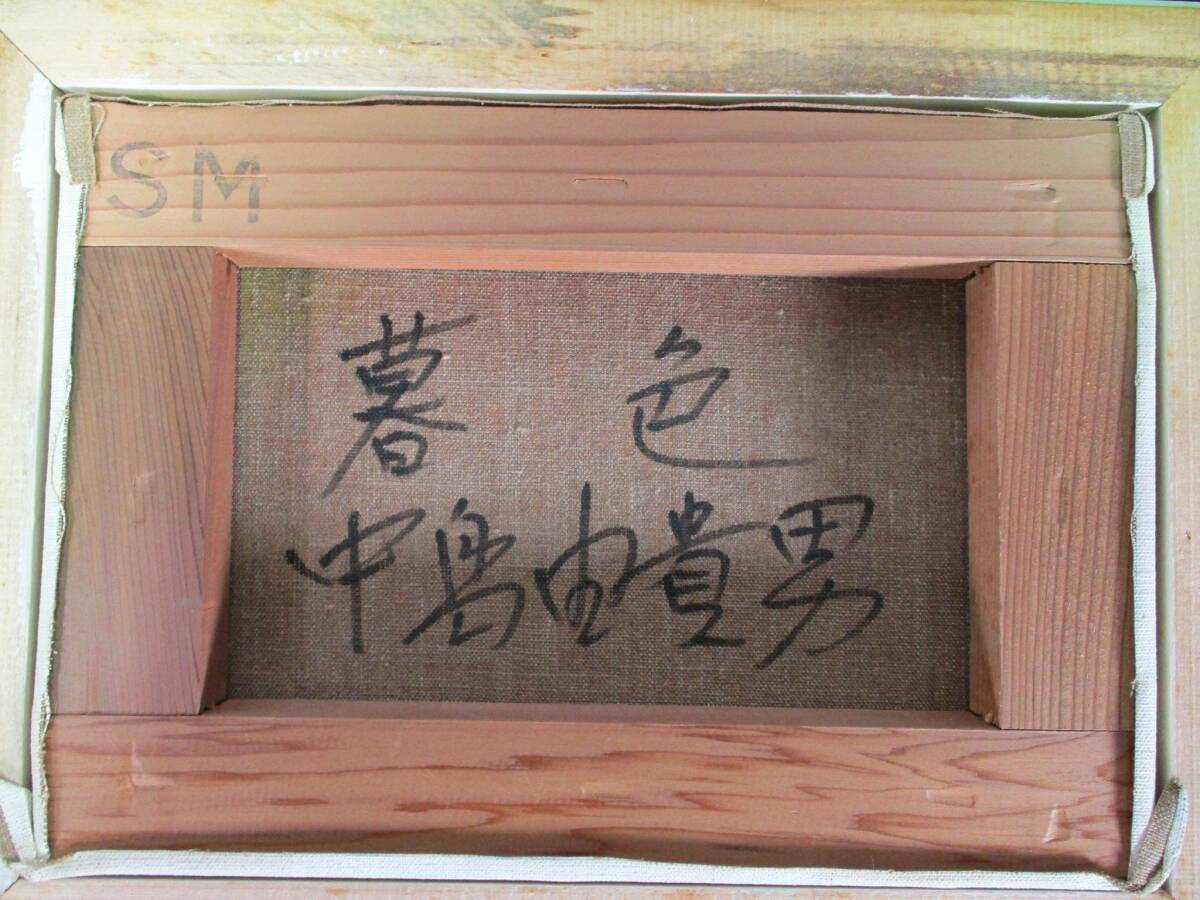 SM
暮色
中島由貴男